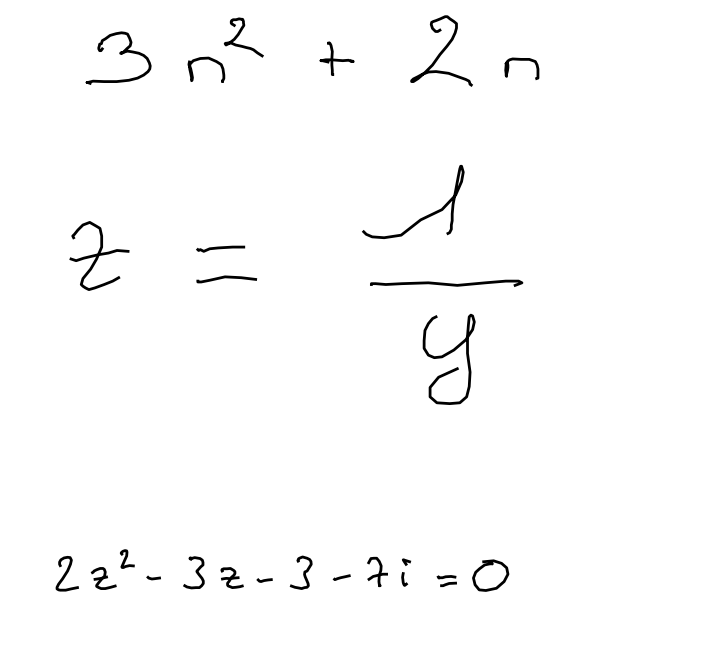 3n² + 2n
z = 1/y
2z² - 3z - 3 - 7i = 0